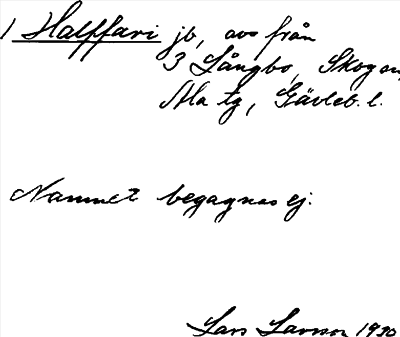 1 Halffari jb, avs från
3 Långbo, Skogen,
Ala tg, Gävleb. l.
Namnet begagnas ej.
Lars Larsson 1930